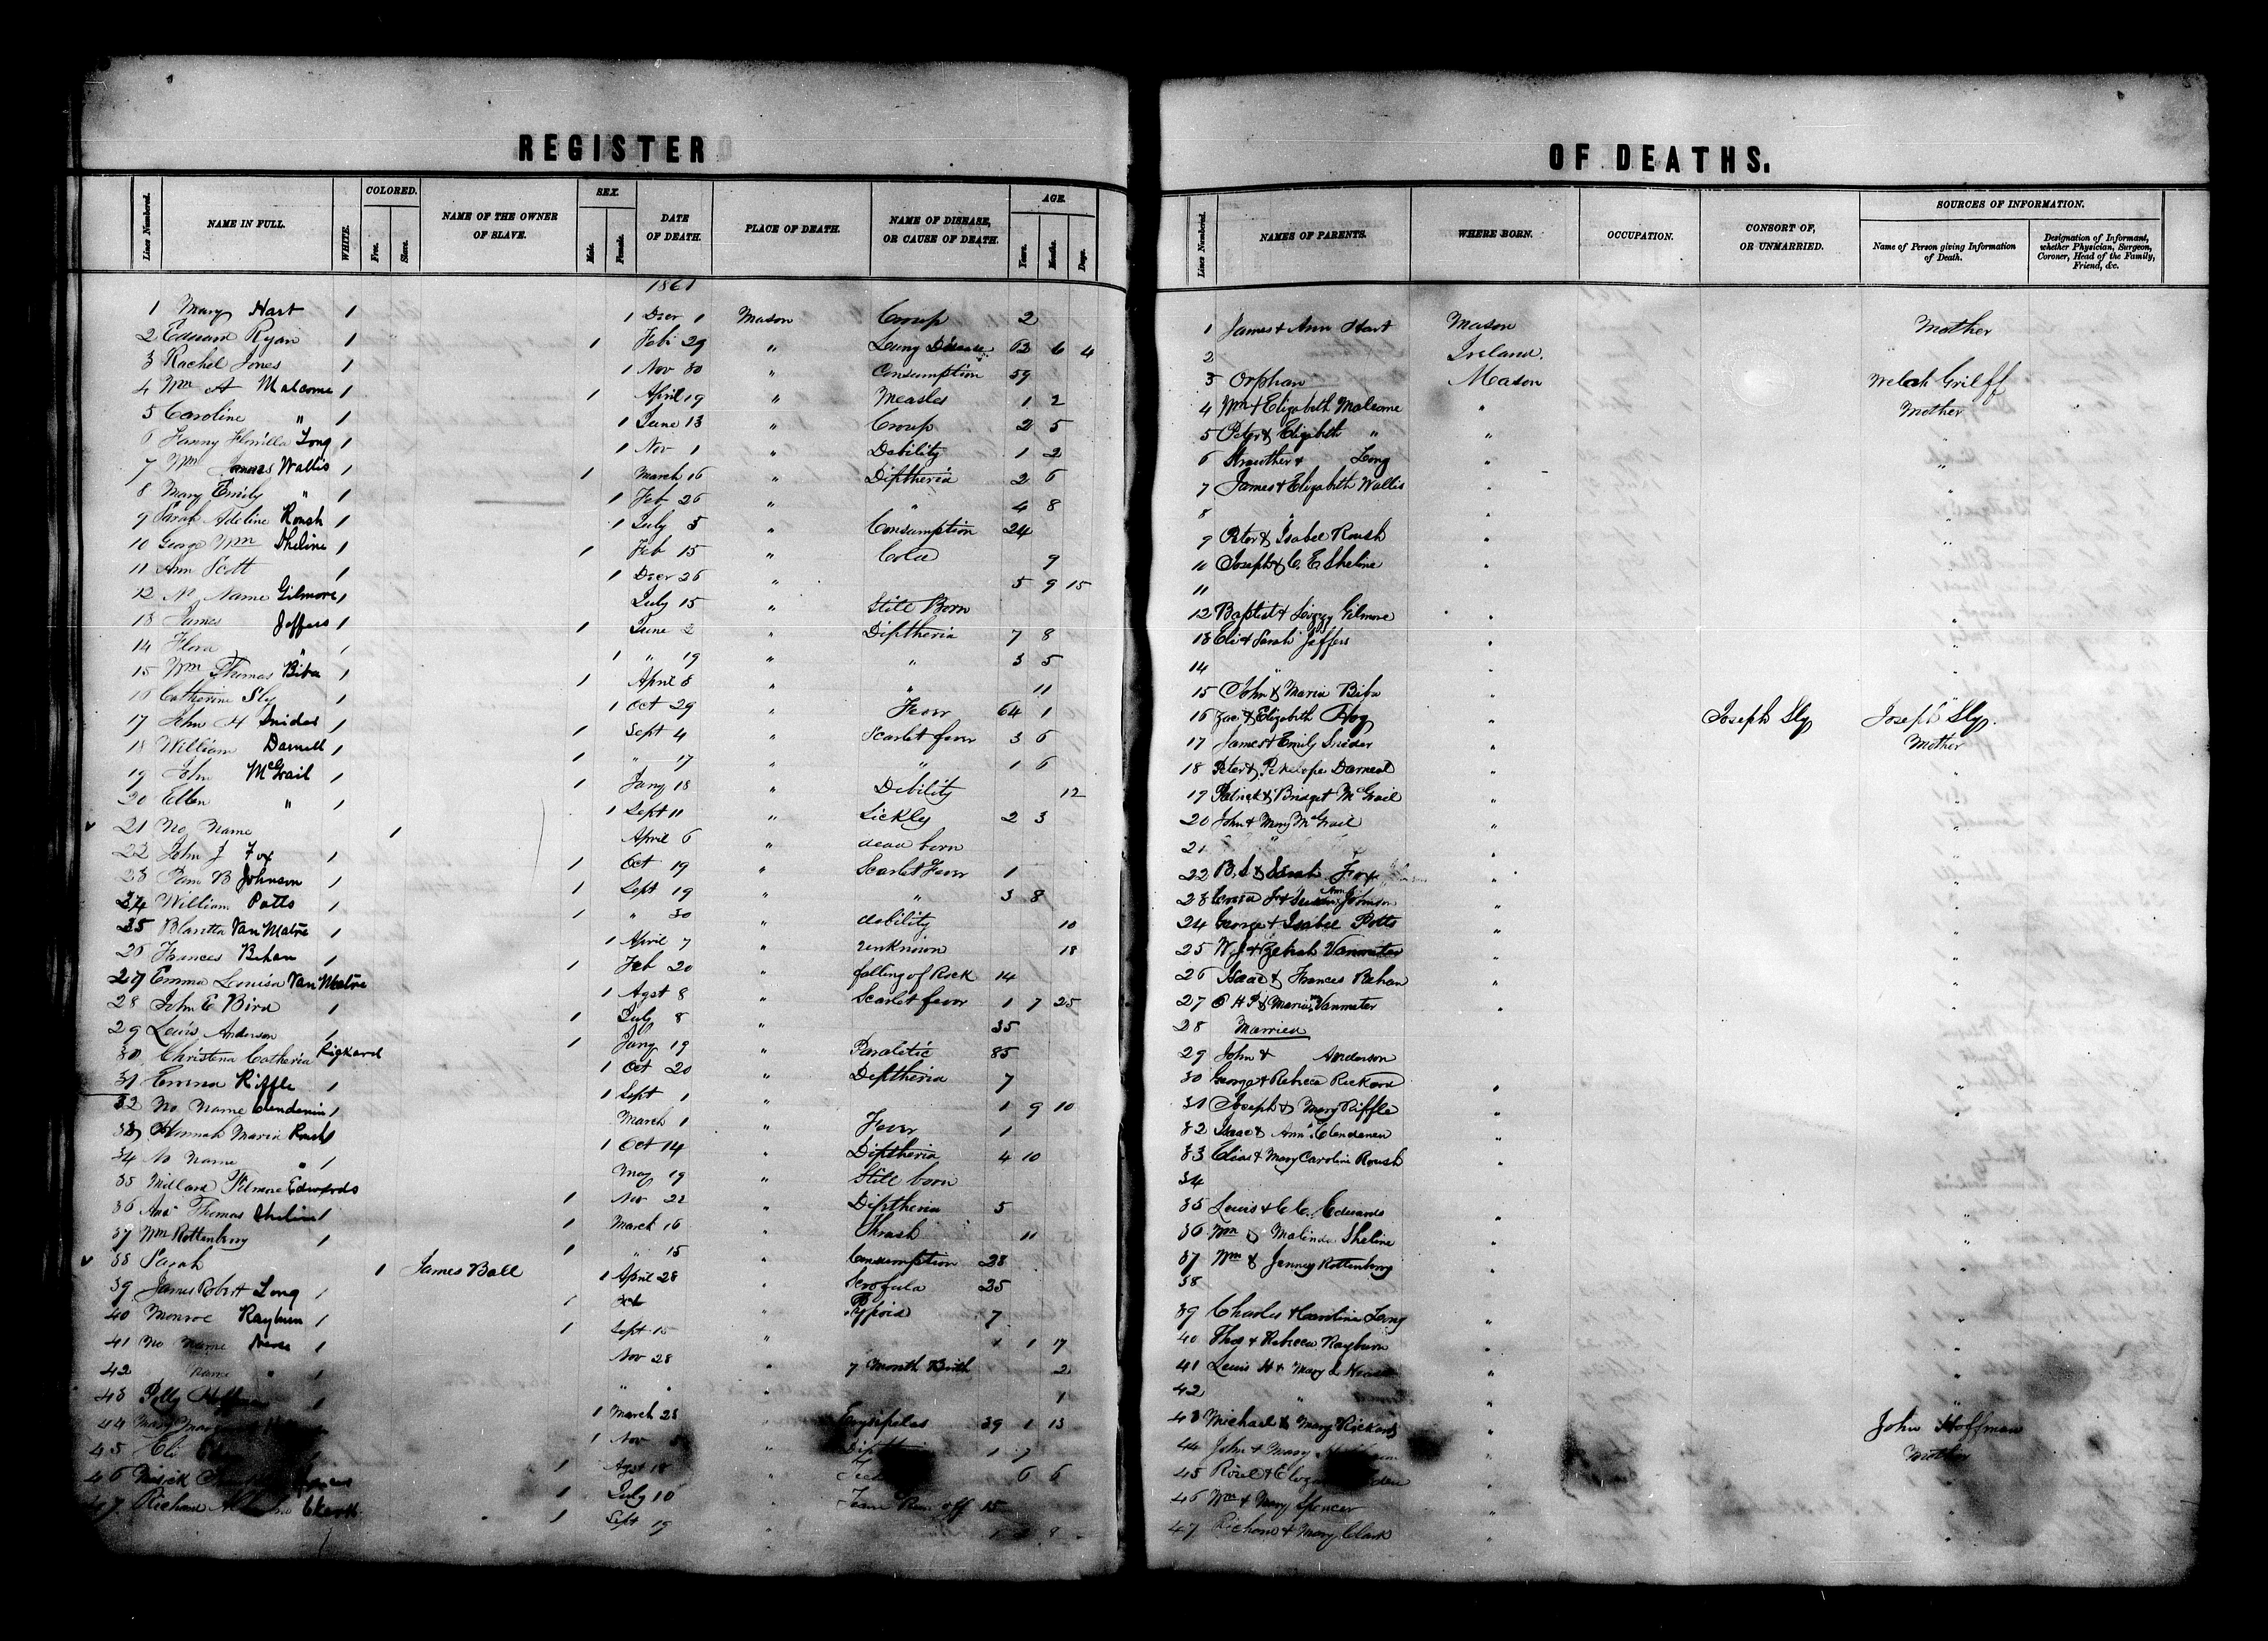 REGISTER OF DEATHS.
Lines Numbered. NAME IN FULL. WHITE. COLORED. Free. Slave. NAME OF THE OWNER OF SLAVE. SEX. Male. Female. DATE OF DEATH. PLACE OF DEATH. NAME OF DISEASE, OR CAUSE OF DEATH. AGE. Years. Months. Days.
1861
1 Mary Hart 1 1 Decr 1 Mason Croup 2
2 Edward Ryan 1 1 Feb 29 " Lung Disease 63 6 4
3 Rachel Jones 1 1 Nov 30 " Consumption 59
4 Wm A Malcome 1 1 April 19 " Measles 1 2
5 Caroline " 1 1 June 13 " Croup 2 5
6 Fanny Florilla Long 1 1 Nov 1 " Debility 1 2
7 Wm James Wallis 1 1 March 16 " Diptheria 2 6
8 Mary Emily " 1 1 Feb 26 " " 4 8
9 Sarah Adeline Roush 1 1 July 5 " Consumption 24
10 George Wm Sheline 1 1 Feb 15 " Cold 9
11 Ann Scott 1 1 Decr 26 " 5 9 15
12 No Name Gilmore 1 July 15 " Still Born
13 James Jeffers 1 1 June 2 " Diptheria 7 8
14 Flora " 1 1 " 19 " " 3 5
15 Wm Thomas Biba 1 1 April 8 " " 11
16 Catherine Sly 1 1 Oct 29 " Fever 64 1
17 John H Snider 1 1 Sept 4 " Scarlet fever 3 6
18 William Darnell 1 1 " 17 " " 1 6
19 John McGrail 1 1 Jany 18 " Debility 12
20 Ellen " 1 1 Sept 11 " Sickly 2 3
21 No Name 1 April 6 " dead born
22 John J Fox 1 1 Oct 19 " Scarlet Fever 1
23 Sam B Johnson 1 1 Sept 19 " " 3 8
24 William Potts 1 1 " 30 " debility 10
25 Blaretta Van Matre 1 1 April 7 " unknown 18
26 Frances Behan 1 1 Feb 20 " falling of Rock 14
27 Emma Louisa Van Matre 1 Agst 8 " Scarlet fever 1 7 25
28 John E Bird 1 1 July 8 " 35
29 Lewis Anderson 1 1 Jany 19 " Paraletic 85
30 Christena Catheria Rickard 1 Oct 20 " Diptheria 7
31 Emma Riffle 1 1 Sept 1 " 1 9 10
32 No Name Clendenin 1 March 1 " Fever 1
33 Hannah Maria Roush 1 Oct 14 " Diptheria 4 10
34 No Name " 1 May 19 " Still born
35 Millard Filmore Edwards 1 Nov 22 " Diptheria 5
36 Thomas Sheline 1 1 March 16 " Thrash 11
37 Wm Rottenberry 1 1 " 15 " Consumption 28
38 Sarah 1 James Ball 1 April 28 " Scrofula 25
39 James Robert Long 1 1 " 7
40 Monroe Rayburn 1 1 Sept 15 " 1 1 17
41 No Name 1 Nov 28 " 7 Month Birth 2
42 Name " 1 " " " 1
43 Polly 1 1 March 28 " Erysipelas 39 1 13
44 Mary 1 Nov " 1 7
45 Eli 1 Agst 18 " 6 6
46 1 July 10 Team Run off 15
47 Richard Clark 1 Sept 19 " 8
Lines Numbered. NAMES OF PARENTS. WHERE BORN. OCCUPATION. CONSORT OF, OR UNMARRIED. SOURCES OF INFORMATION. Name of Person giving Information of Death. Designation of Informant, whether Physician, Surgeon, Coroner, Head of the Family, Friend, &c.
1 James & Ann Hart Mason Mother
2 Ireland.
3 Orphan Mason
4 Wm & Elizabeth Malcome " Mother
5 Peter & Elizabeth " " "
6 Strauther & Long " "
7 James & Elizabeth Wallis " "
8 " " "
9 Peter & Isabel Roush " "
10 Joseph & C. E Sheline "
11
12 Baptist & Lizzy Gilmore " "
13 Eli & Sarah Jeffers " "
14 " " "
15 John & Maria Biba " "
16 Zac. & Elizabeth Hog " Joseph Sly Joseph Sly.
17 James & Emily Snider " Mother
18 Peter & Penelope Darneal " "
19 Patrick & Bridget McGrail " "
20 John & Mary McGrail " "
21 " "
22 B. S & Sarah Fox " "
23 Johnson " "
24 George & Isabel Potts " "
25 W. J & Vanmater " "
26 Isaac & Frances Behan " "
27 O H P & Maria Vanmater " "
28 Married
29 John & Anderson
30 George & Rebeca Rickard " "
31 Joseph & Mary Riffle " "
32 Isaac & Ann Clendenen "
33 Elias & Mary Caroline Roush "
34
35 Lewis & C. C. Edwards " "
36 Wm & Malinda Sheline " "
37 Wm & Jenney Rottenberry " "
38
39 Charles & Caroline Long " "
40 Thos & Rebecca Rayburn " "
41 Lewis H & Mary L " "
42 " " "
43 Michael & Mary Rickard " John Hoffman
44 John & Mary " Mother
45 "
46 Wm & Mary Spencer " "
47 Richard & Mary Clark " "